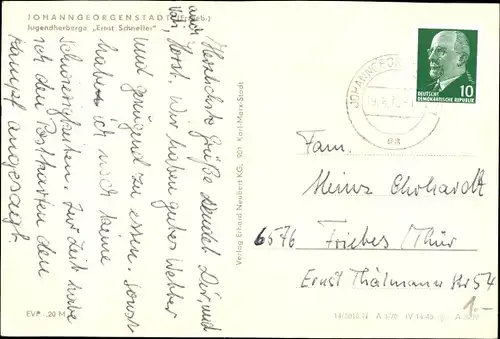 JOHANNGEORGENSTADT (Erzgeb.)
Jugendherberge „Ernst Schneller"
Herzlichste Grüße sendet Dir und
auch
Horst. Wir haben gutes Wetter
und genügend zu essen. Sonst
habe ich noch keine
Schwierigkeiten. Zur Zeit habe
ich den Postkarten den
Kampf angesagt.
EVP -,20 M
Verlag Erhard Neubert KG, 901 Karl-Marx-Stadt
DEUTSCHE
DEMOKRATISCHE REPUBLIK
10
Fam.
Heinz Ehrhardt
6576 Triebes/Thür
Ernst Thälmanner Str 54
1.-